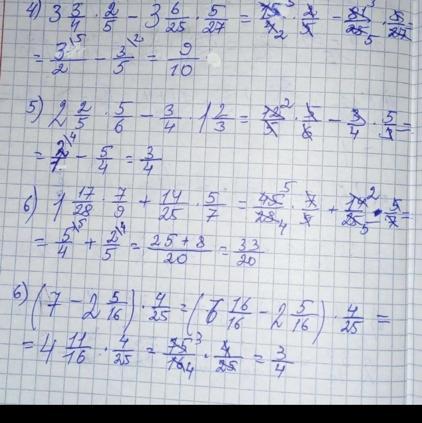 4) 3 3/4 · 2/5 − 3 6/25 · 5/27 = 15/4 · 2/5 − 81/25 · 5/27
= 3/2 − 3/5 = 9/10
5) 2 2/5 · 5/6 − 3/4 · 1 2/3 = 12/5 · 5/6 − 3/4 · 5/3 =
= 2/1 − 5/4 = 3/4
6) 1 17/28 · 7/9 + 14/25 · 5/7 = 45/28 · 7/9 + 14/25 · 5/7 =
= 5/4 + 2/5 = 25+8/20 = 33/20
6) (7 − 2 5/16) · 4/25 = (6 16/16 − 2 5/16) · 4/25 =
= 4 11/16 · 4/25 = 75/16 · 4/25 = 3/4